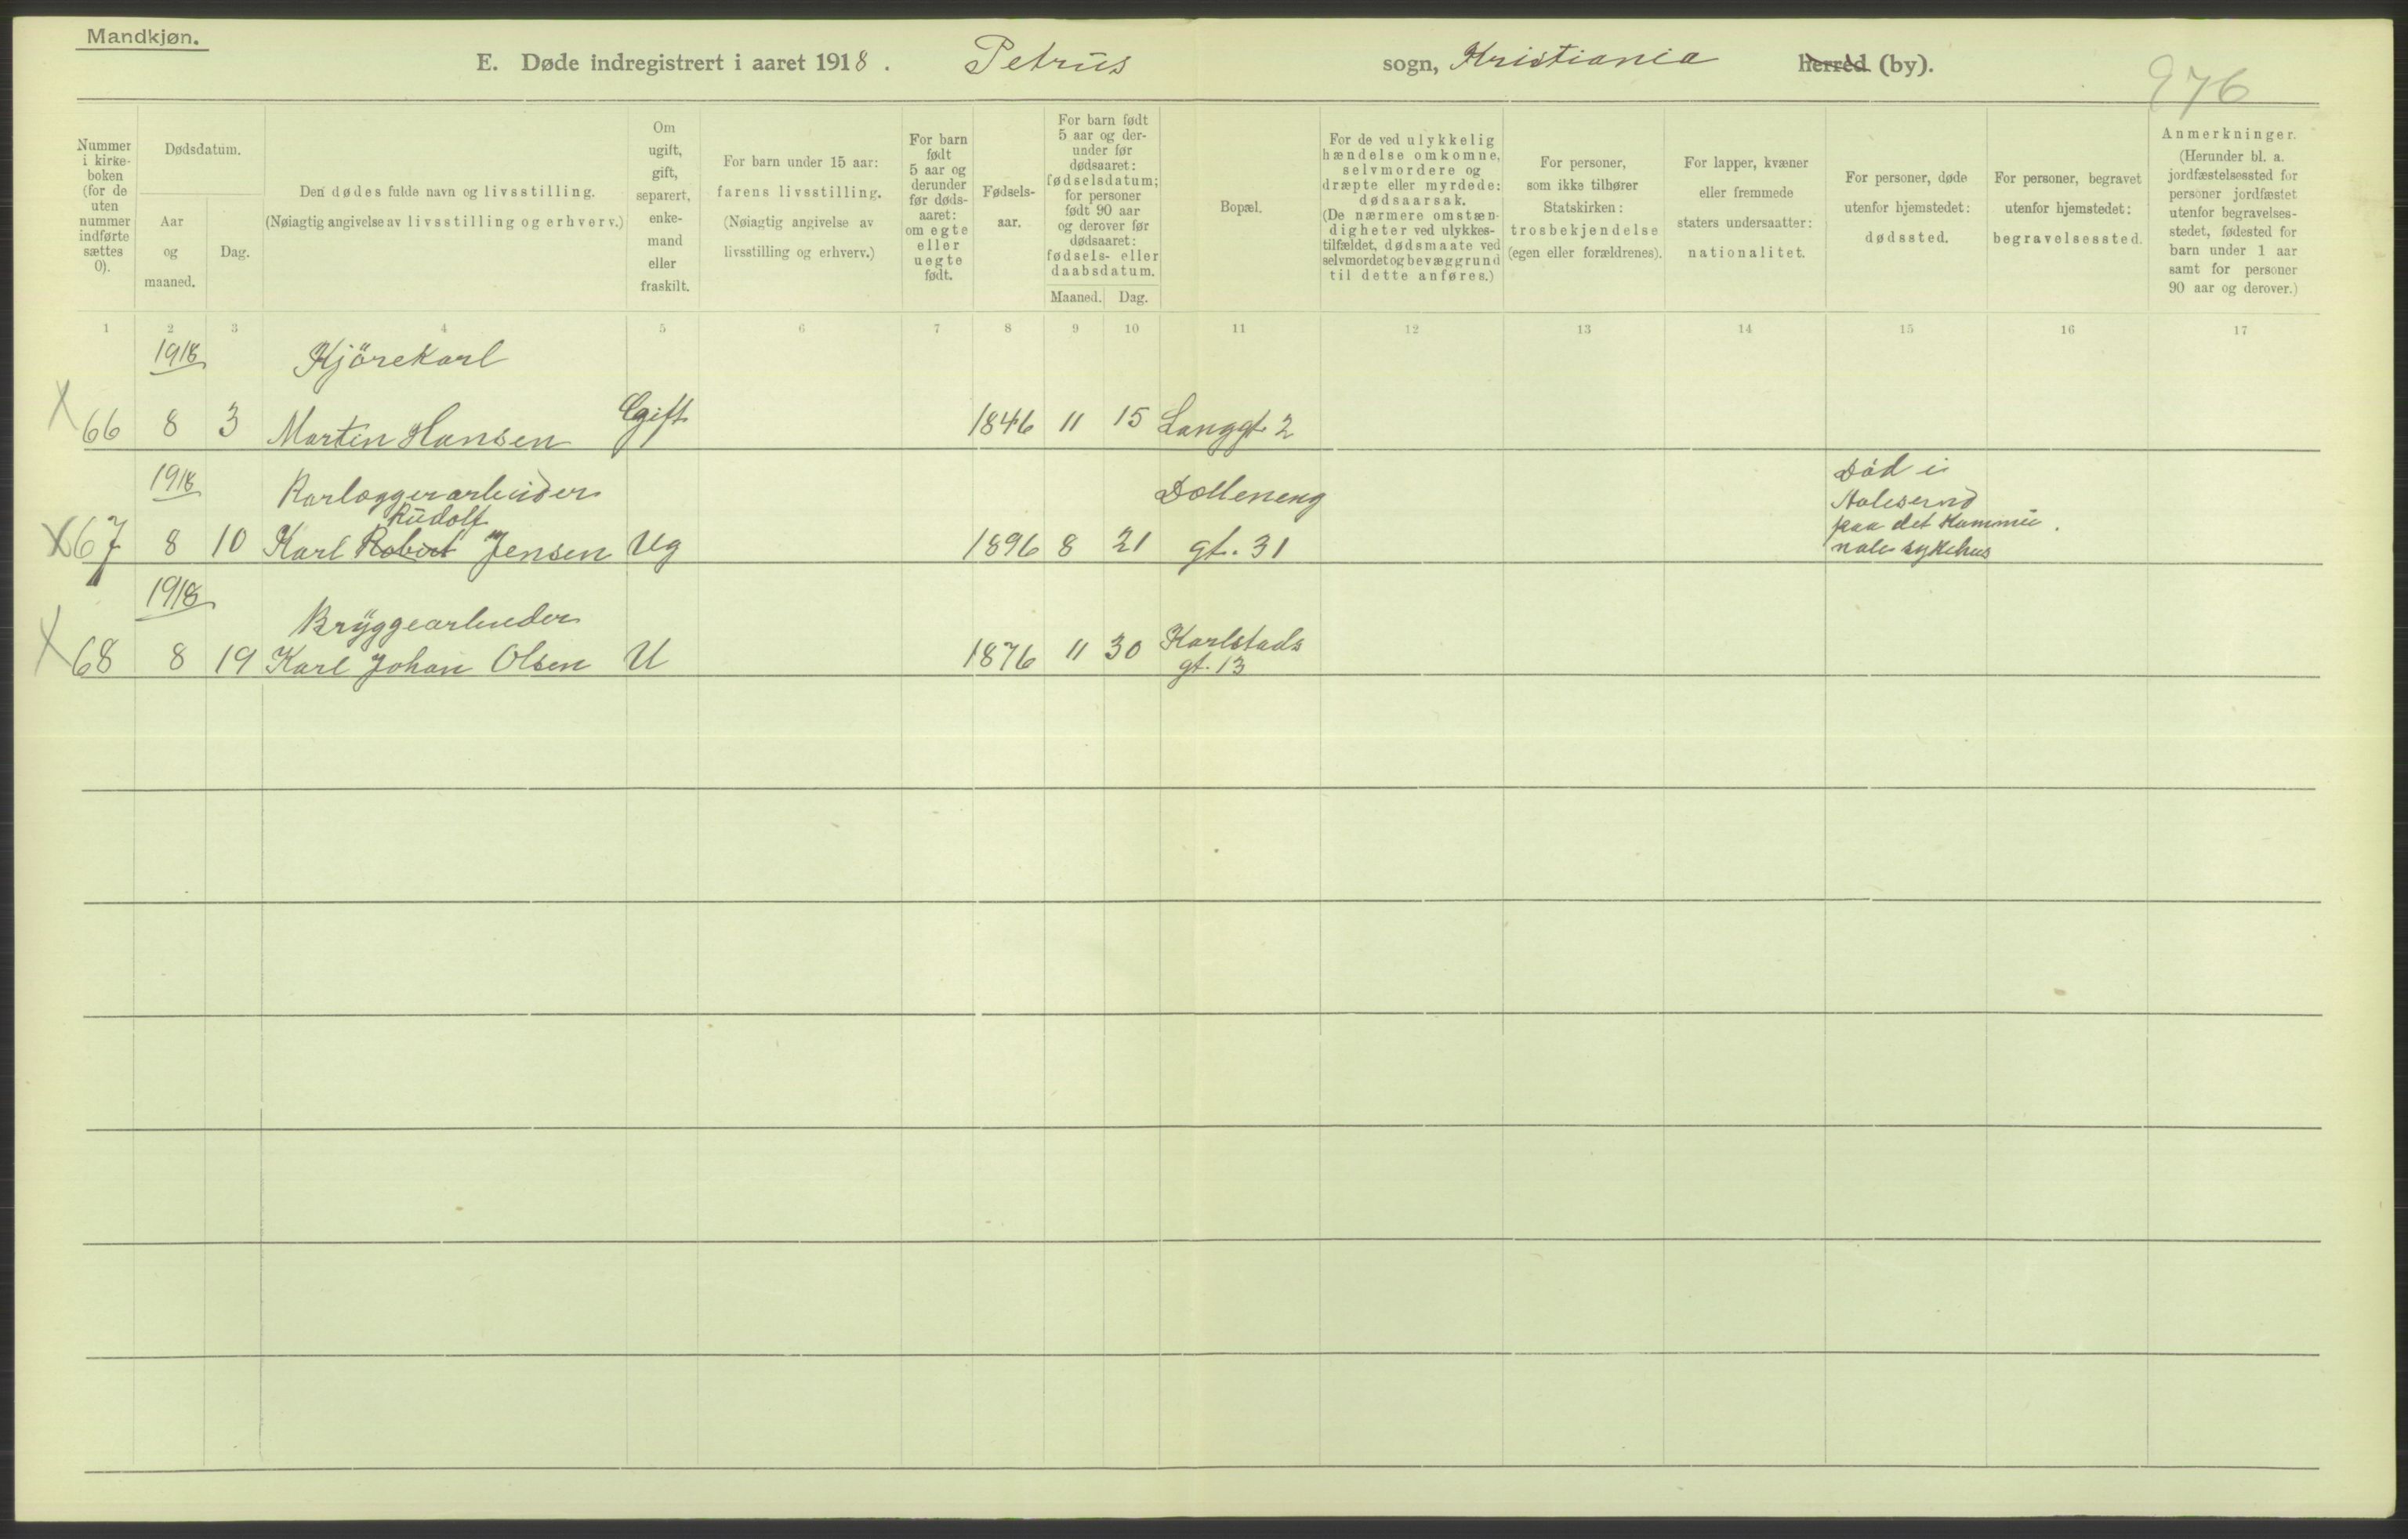 Mandkjøn.
E. Døde indregistrert i aaret 1918. Petrus sogn, Kristiania herred (by).
976
Nummer i kirke-boken (for de uten nummer indførte sættes 0).
Dødsdatum.
Aar og maaned.
Dag.
Den dødes fulde navn og livsstilling.
(Nøiagtig angivelse av livsstilling og erhverv.)
Om ugift, gift, separert, enke-mand eller fraskilt.
For barn under 15 aar:
farens livsstilling.
(Nøiagtig angivelse av livsstilling og erhverv.)
For barn født 5 aar og derunder før døds-aaret: om egte eller uegte født.
Fødsels-aar.
For barn født 5 aar og der-under før dødsaaret: fødselsdatum; for personer født 90 aar og derover før dødsaaret: fødsels- eller daabsdatum.
Maaned. Dag.
Bopæl.
For de ved ulykkelig hændelse omkomne, selvmordere og dræpte eller myrdede: dødsaarsak.
(De nærmere omstæn-digheter ved ulykkes-tilfældet, dødsmaate ved selvmordet og bevæggrund til dette anføres.)
For personer, som ikke tilhører Statskirken: trosbekjendelse (egen eller forældrenes).
For lapper, kvæner eller fremmede staters undersaatter: nationalitet.
For personer, døde utenfor hjemstedet: dødssted.
For personer, begravet utenfor hjemstedet: begravelsessted.
Anmerkninger.
(Herunder bl. a. jordfæstelsessted for personer jordfæstet utenfor begravelses-stedet, fødested for barn under 1 aar samt for personer 90 aar og derover.)
1 2 3 4 5 6 7 8 9 10 11 12 13 14 15 16 17
1918 Kjörekarl
X 66 8 3 Martin Hansen Gift 1846 11 15 Langgt. 2
1918 Rørlæggerarbeider Dælleneng Död i
Rudolf Aalesund
paa det Kommu
X 67 8 10 Karl Robert Jensen Ug 1896 8 21 gt. 31 nale sykehus
1918
Bryggearbeider Karlstads
X 68 8 19 Karl Johan Olsen U 1876 11 30 gt. 13